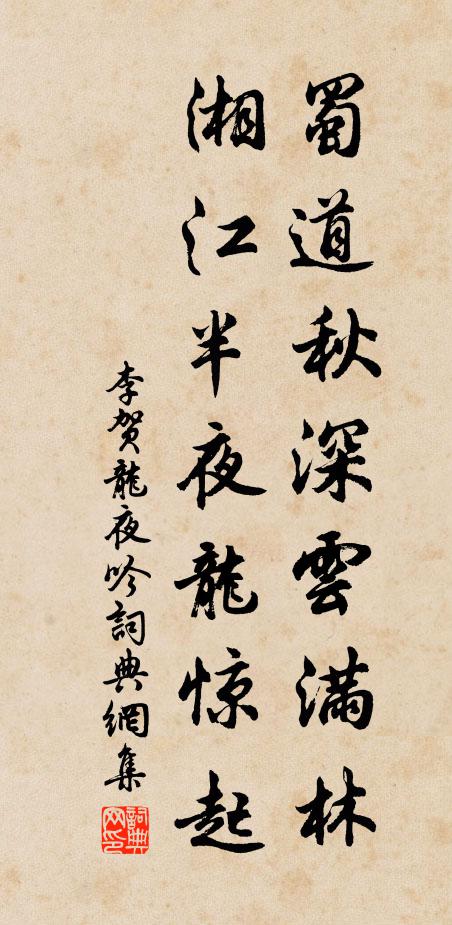 蜀道秋深雲滿林
湘江半夜龍惊起
李贺龍夜吟詞典網集
詞典网印